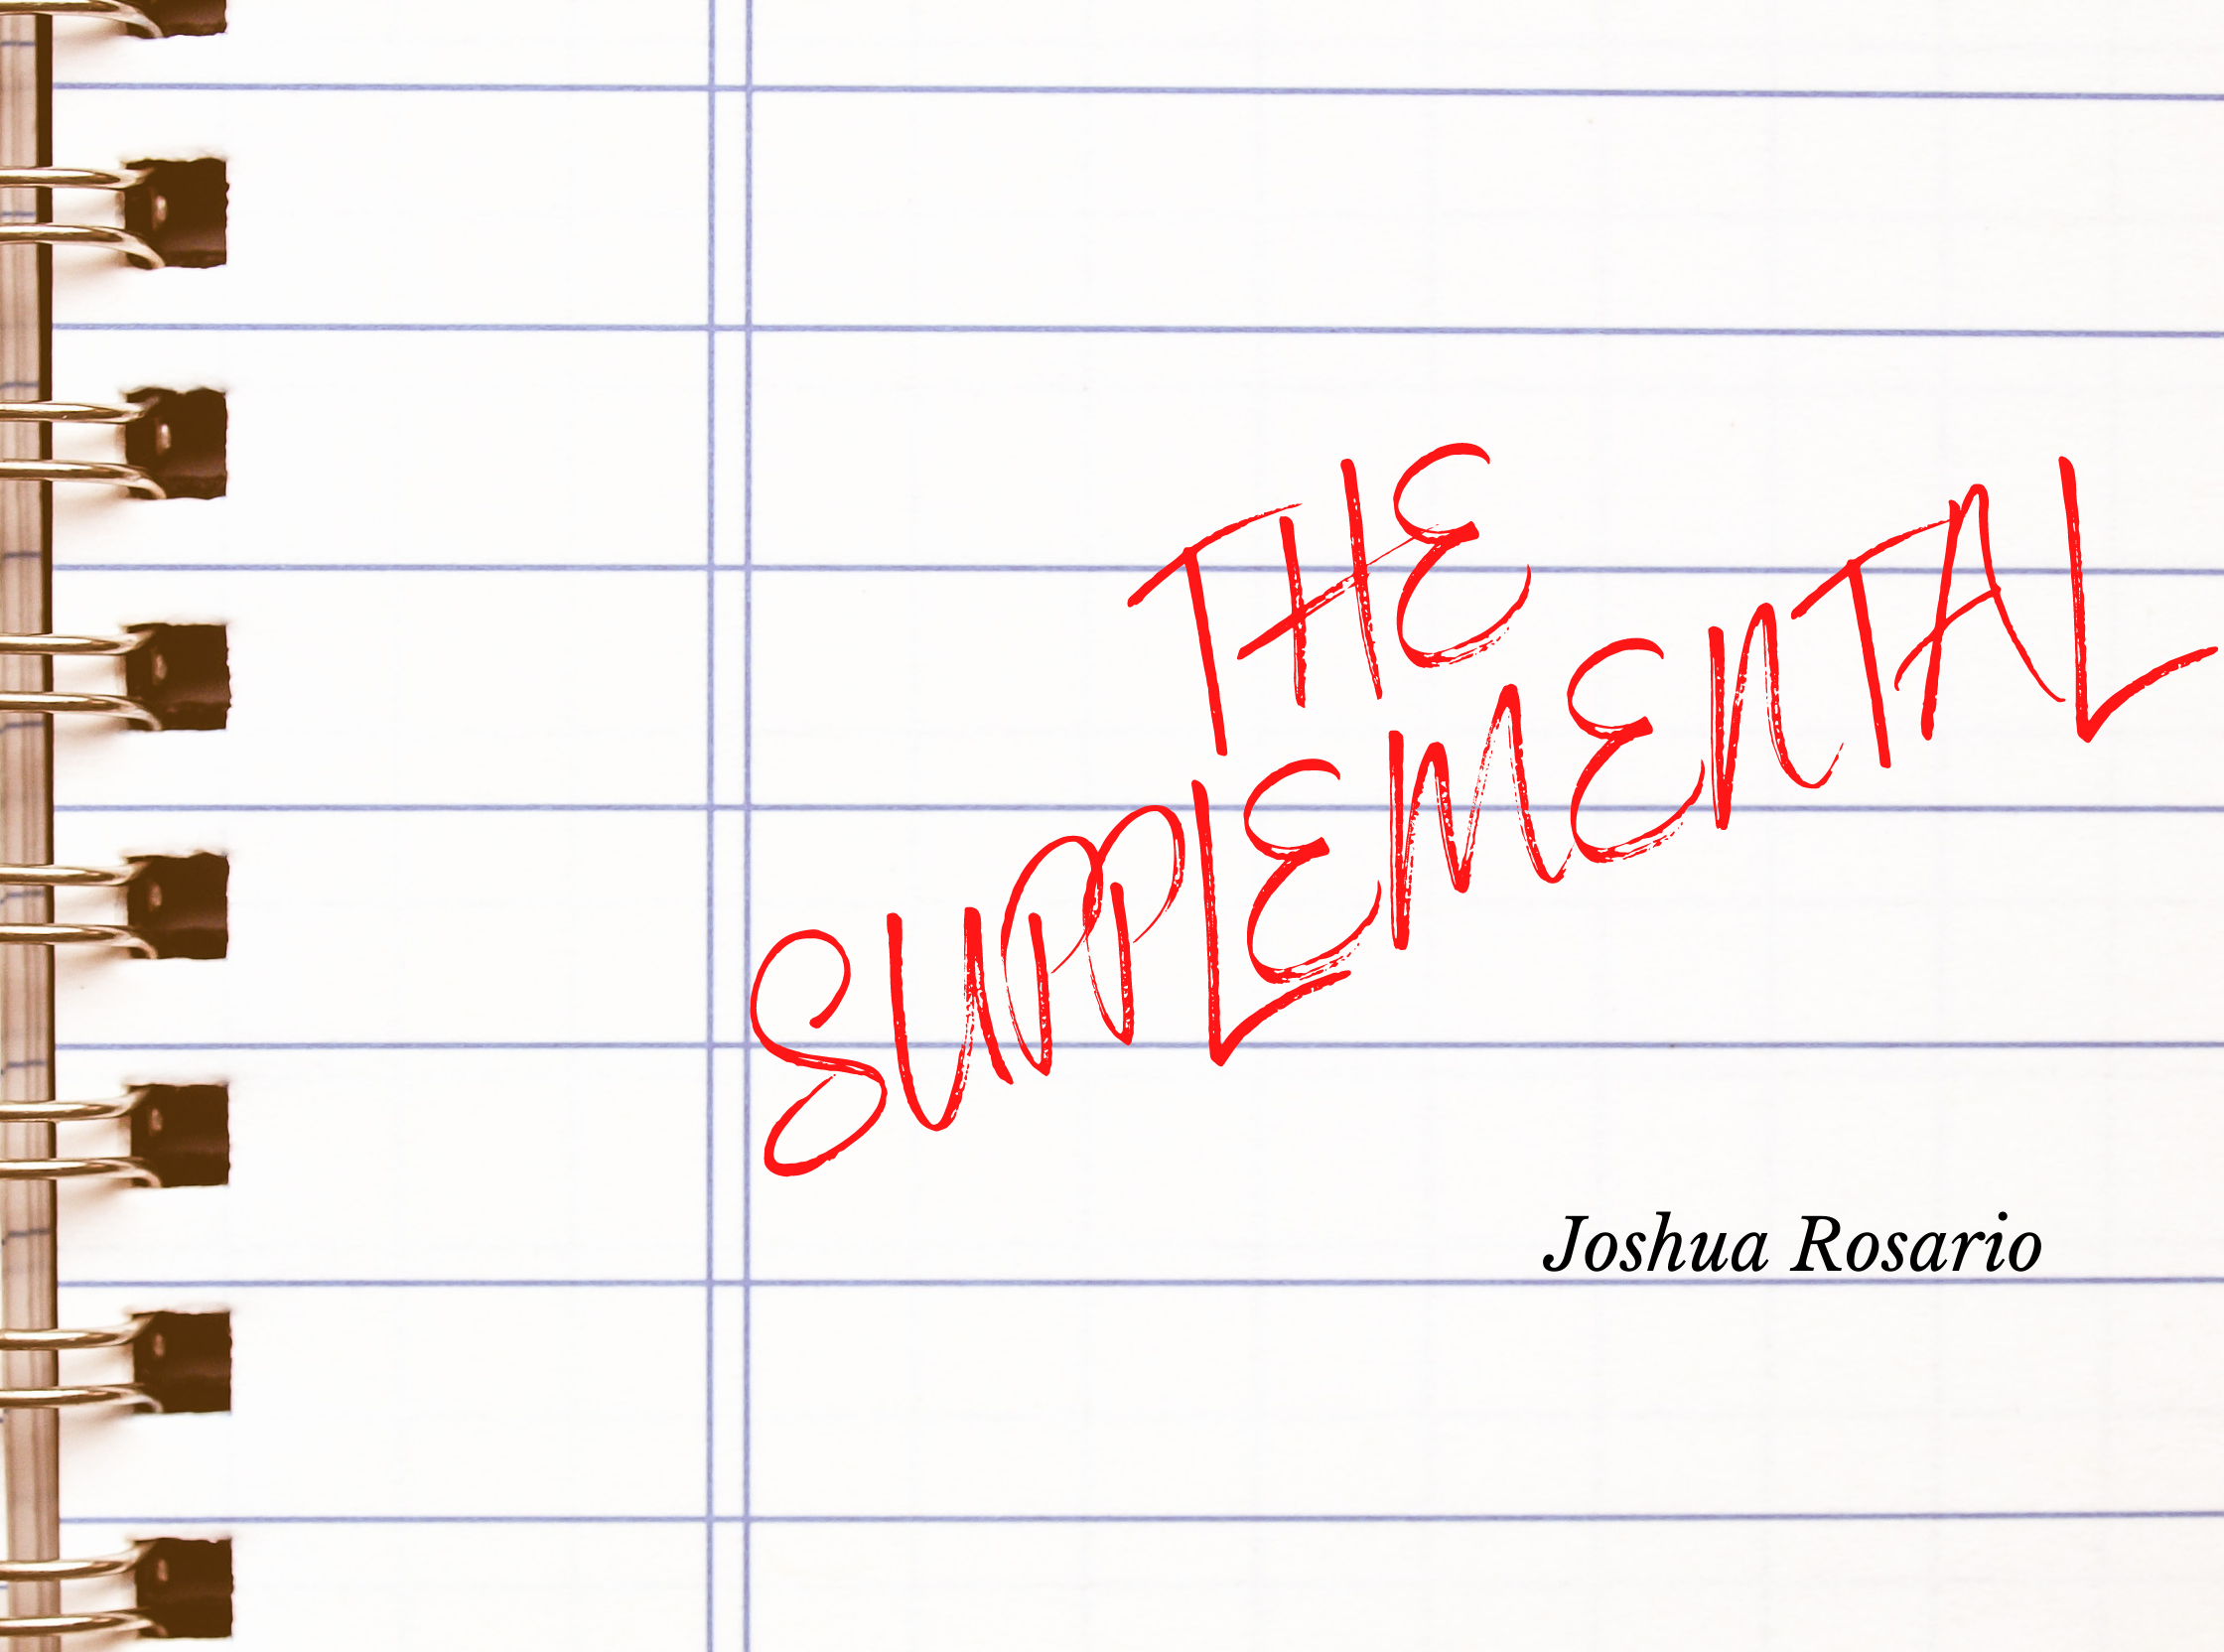 THE
SUPPLEMENTAL
Joshua Rosario